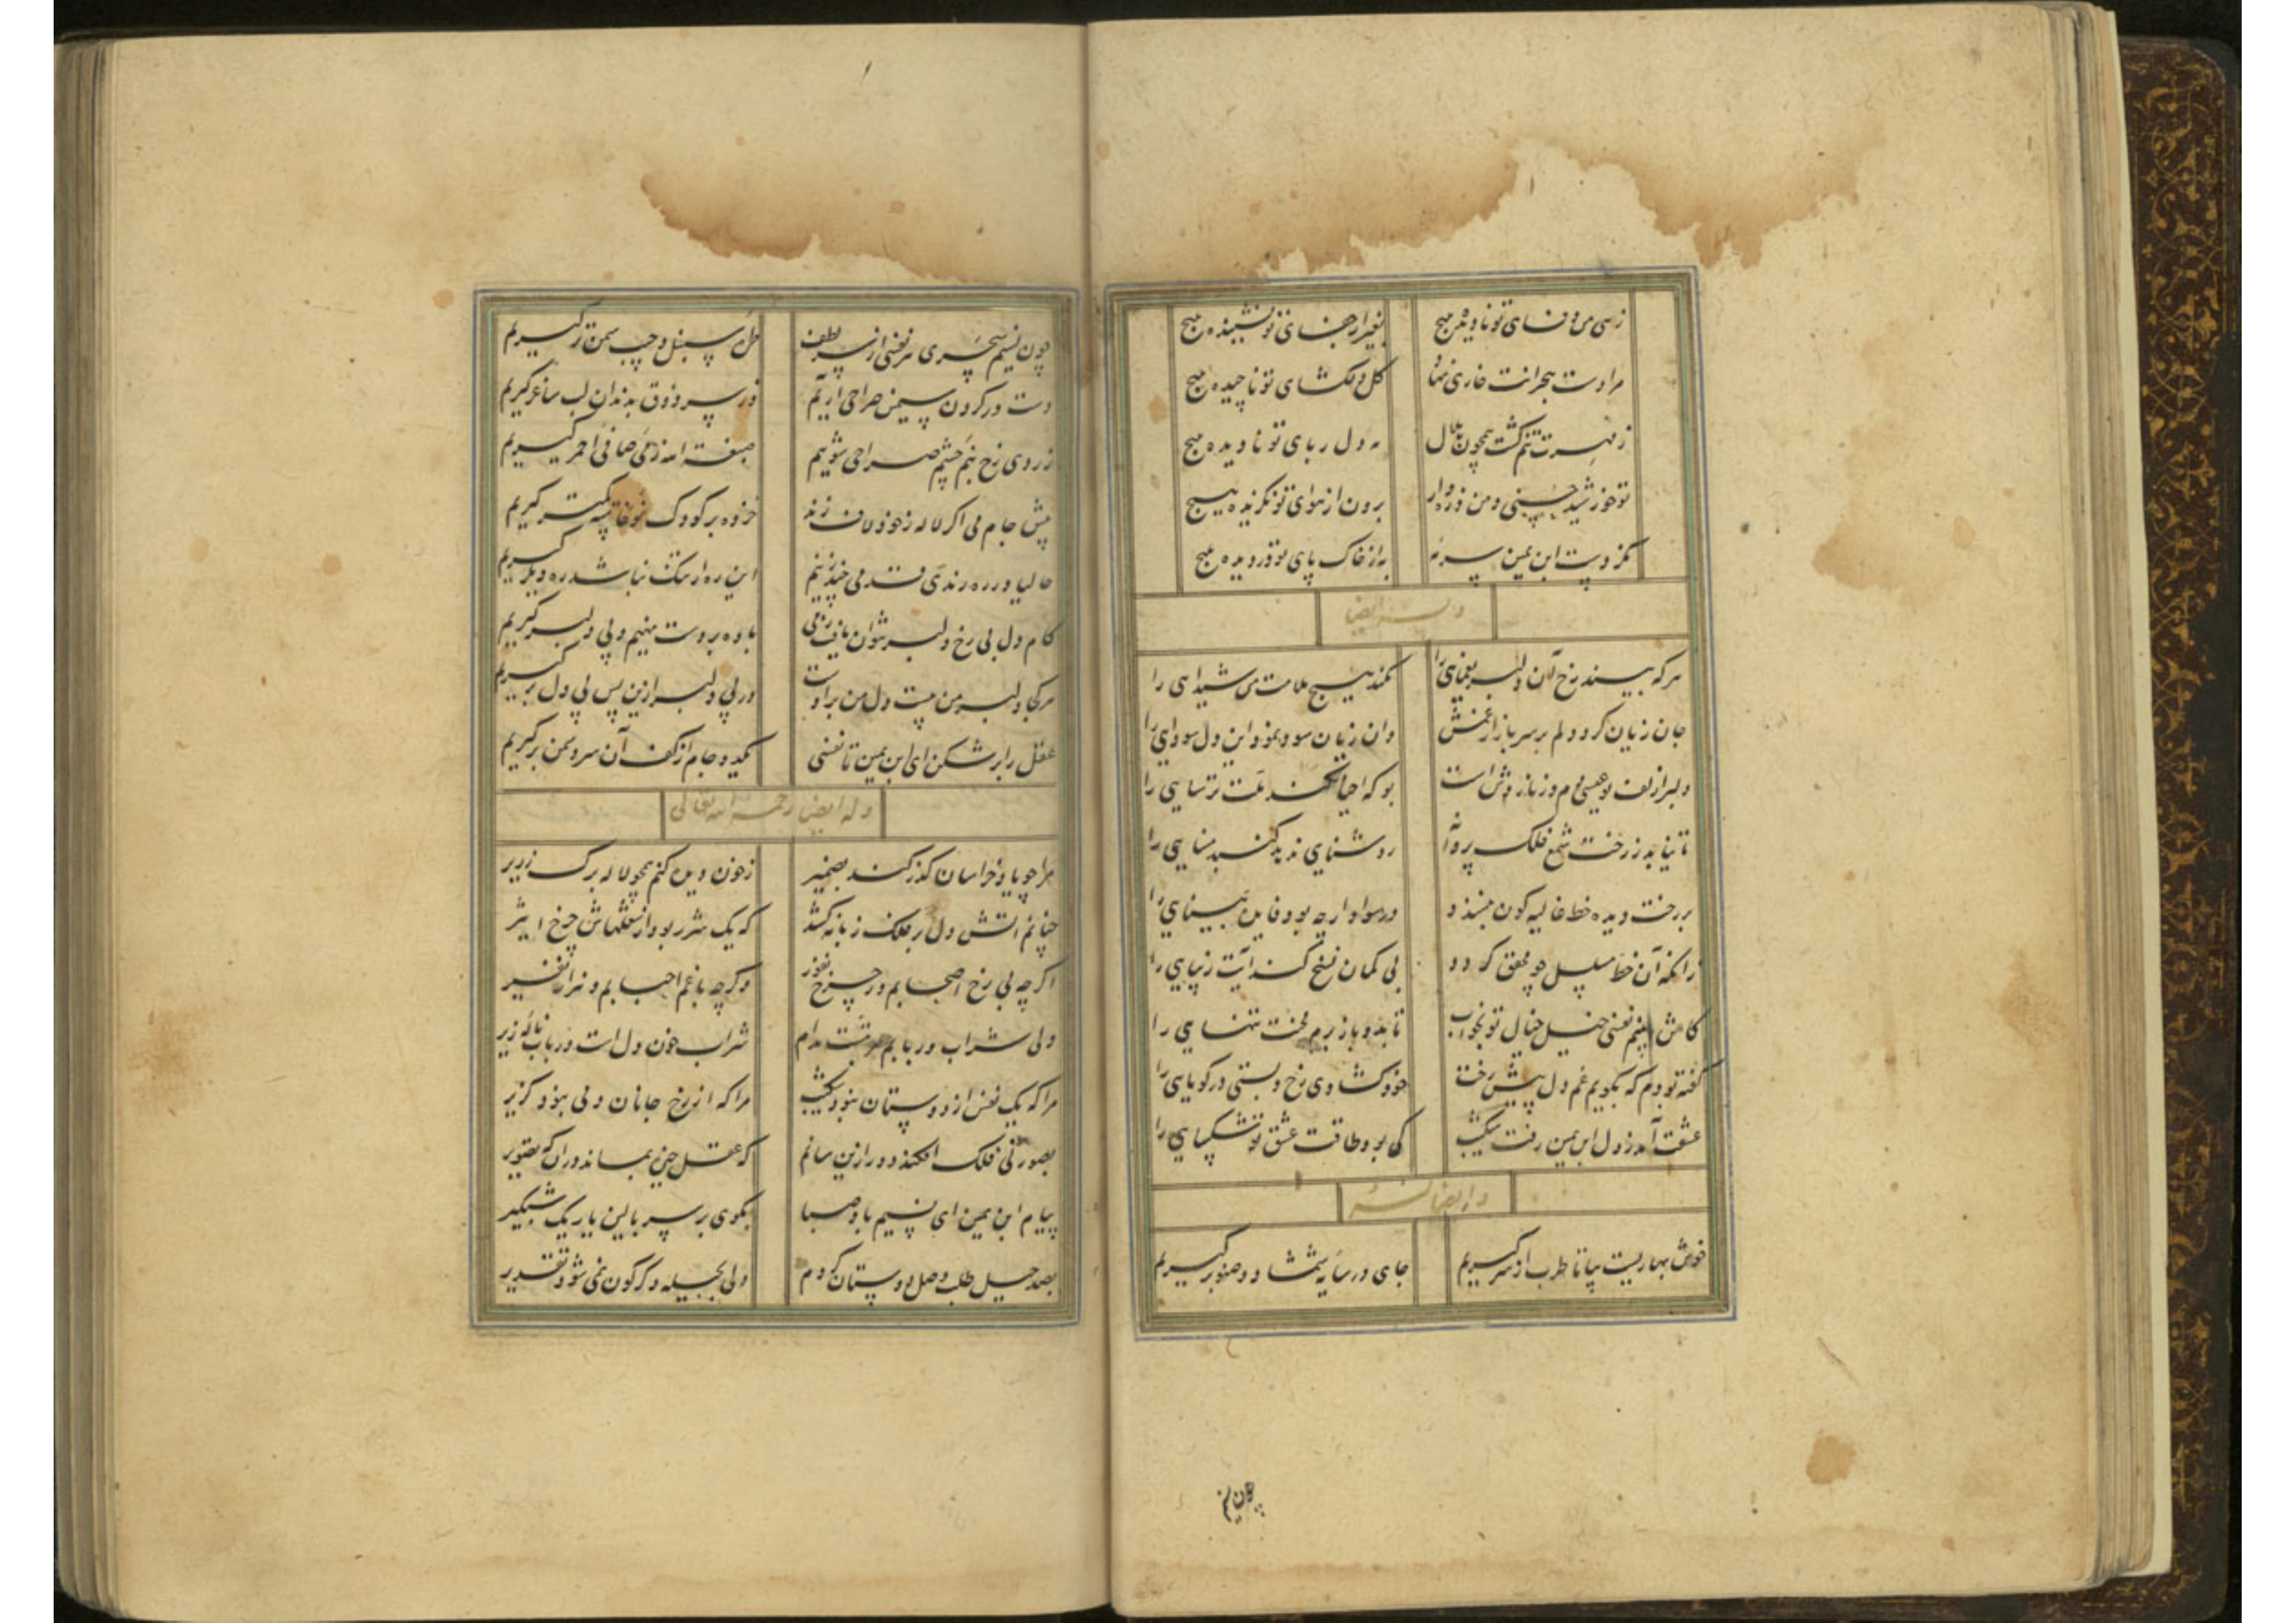 زهی من وفای تو نادیده هیچ بغیر از جفای تو نشنیده هیچ
مرا دست هجرانت خاری نهاد گل دلگشای تو ناچیده هیچ
ز مهرت تنم گشت همچون هلال مه دل ربای تو نادیده هیچ
تو خورشید حسنی و من ذره وار برون از هوای تو نگزیده هیچ
کز دست ابن یمین سرمه به از خاک پای تو در دیده هیچ
وله ایضا
هرکه بیند رخ آن دلبر یغمایی را نکند هیچ ملامت من شیدایی را
جان زیان کرد دلم بر سر بازار غمش وان زیان سود نمود این دل سودایی را
دلبر از لف تو عیسی دم و زنار وش است بو که احیا نکند ملت ترسایی را
تا نیابد ز رخت شمع فلک پروانه روشنایی ندهد گنبد مینایی را
بر رخت دیده خط غالیه گون می‌بیند و در سواد ار چه بود فایده بینایی را
زانکه آن خط مسلسل چو محقق گردد بی گمان نسخ کند آیت زیبایی را
کاش بینم نفسی خیل خیال تو بخواب تا بدو باز برم محنت تنهایی را
گفته بودم که بگویم غم دل پیش رخت خود گشادی رخ و بستی در گویایی را
عشقت آمد ز دل ابن یمین رفت شکیب کی بود طاقت عشق تو شکیبایی را
وله ایضا
خوش بهاریست بیا تا طرب از سر گیریم جای در سایه شمشاد و صنوبر گیریم
چون نسیم
چون نسیم سحری هر نفسی از سر لطف طره سنبل و جیب سمن تر گیریم
دست در گردن سیمین صراحی آریم وز سر ذوق بدندان لب ساغر گیریم
زردی رخ بنم چشم صراحی شویم صبغة الله ز می صافی احمر گیریم
پیش جام می اگر لاله ز خود لاف زند خرده بر کودک نوخاسته کمتر گیریم
حالیا در ره رندی قدمی چند زنیم این ره ار نیک نباشد ره دیگر گیریم
کام دل بی رخ دلبر نتوان یافت دمی باده بر دست نهیم و پی دلبر گیریم
هر کجا دلبر من هست دل من بر اوست در پی دلبر ازین پس پی دل برگیریم
عقل را بر شکن ای ابن یمین تا نفسی کید و جام از کف آن سرو سمن بر گیریم
وله ایضا رحمه الله تعالی
مرا چو یاد خراسان گذر کند بضمیر ز خون دیده کنم همچو لاله برگ زریر
چنانم آتش دل بر فلک زبانه کشد که یک شرر بود از شعلهاش چرخ اثیر
اگر چه بی رخ اصحابم و در چرخ نفور وگر چه با غم احبابم و هزار نفیر
ولی شراب و ربابم مرتبست مدام شراب خون دل است و رباب ناله زیر
مرا که یک نفس از دوستان نبود شکیب مرا که از رخ جانان دمی نبود گزیر
بصورتی فلک افکند دور ازین سانم که عقل خیره بماند در آن که تصویر
پیام ابن یمین ای نسیم باد صبا بگوی بر سر بالین یار یک شبگیر
بصد حیل طلب وصل دوستان کردم ولی بحیله دگرگون نمی شود تقدیر